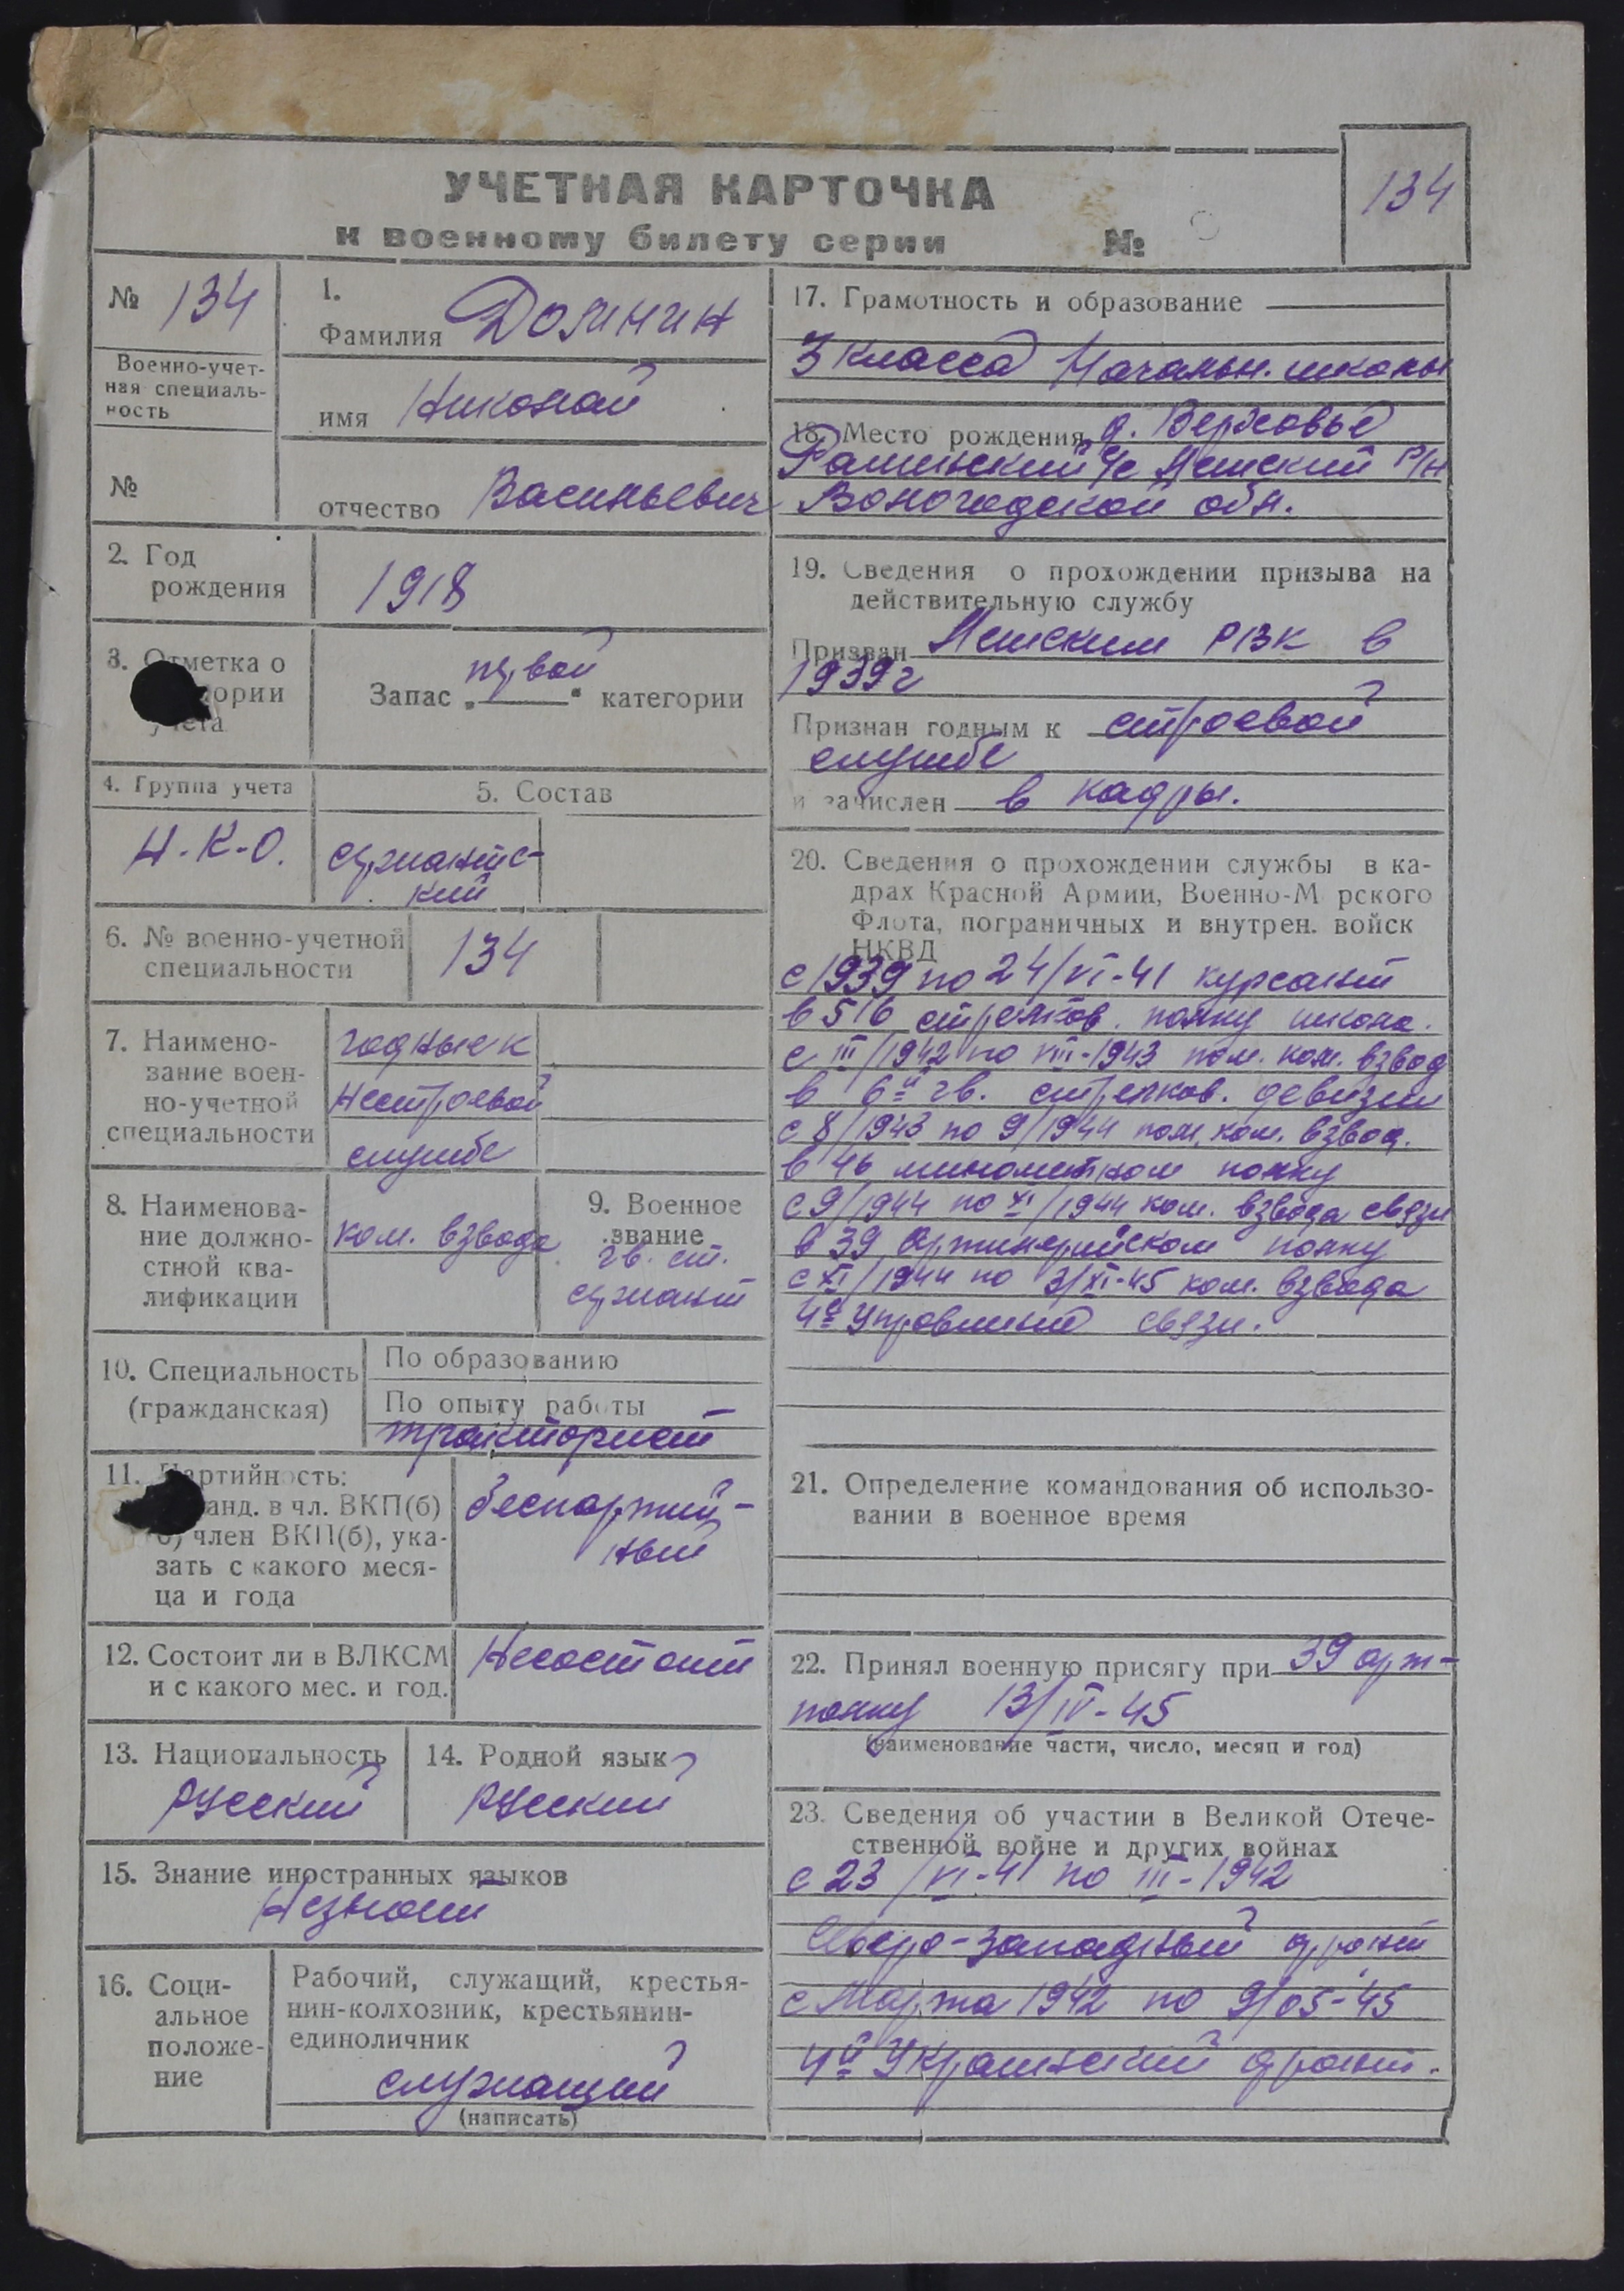 134
УЧЕТНАЯ КАРТОЧКА
к военному билету серии №
№ 134
Военно-учет-
ная специаль-
ность
№
1.
Фамилия Долинин
имя Николай
отчество Васильевич
2. Год
рождения
1918
3. Отметка о
учета
Запас „первой“ категории
4. Группа учета
Н.К.О.
5. Состав
сержантс-
кий
6. № военно-учетной
специальности
134
7. Наимено-
вание воен-
но-учетной
специальности
годные к
нестроевой
службе
8. Наименова-
ние должно-
стной ква-
лификации
ком. взвода
9. Военное
звание
гв. ст.
сержант
10. Специальность
(гражданская)
По образованию
По опыту работы
тракторист
11. Партийность:
канд. в чл. ВКП(б)
б) член ВКП(б), ука-
зать с какого меся-
ца и года
беспартий-
ный
12. Состоит ли в ВЛКСМ
и с какого мес. и год.
Несостоит
13. Национальность
русский
14. Родной язык
русский
15. Знание иностранных языков
Незнает
16. Соци-
альное
положе-
ние
Рабочий, служащий, крестья-
нин-колхозник, крестьянин-
единоличник
служащий
(написать)
17. Грамотность и образование
3 класса Начальн. школы
18. Место рождения д. Верховье
с/с р/н
Вологодской обл.
19. Сведения о прохождении призыва на
действительную службу
Призван РВК в
1939г
Признан годным к строевой
службе
и зачислен в кадры.
20. Сведения о прохождении службы в ка-
драх Красной Армии, Военно-Морского
Флота, пограничных и внутрен. войск
НКВД
с 1939 по 24/VI-41 курсант
в 516 стрелков. полку школа.
с III/1942 по VIII-1943 пом. ком. взвод
в 6й гв. стрелков. девизии
с 8/1943 по 9/1944 пом. ком. взвод.
в 46 минометном полку
с 9/1944 по XI/1944 ком. взвода связи
в 39 Артилерийском полку
с XI/1944 по 3/XI-45 ком. взвода
4е Управление связи.
21. Определение командования об использо-
вании в военное время
22. Принял военную присягу при 39 арт-
полку 13/IV-45
(наименование части, число, месяц и год)
23. Сведения об участии в Великой Отече-
ственной войне и других войнах
с 23/VI-41 по III-1942
Северо-Западный фронт
с Марта 1942 по 9/05-45
4й Украинский фронт.